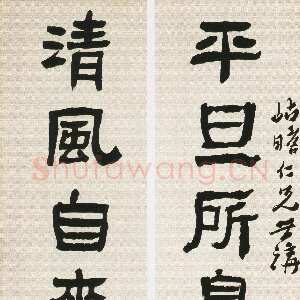 岵瞻仁兄共講
平旦所息
清風自來
Shufawang.CN